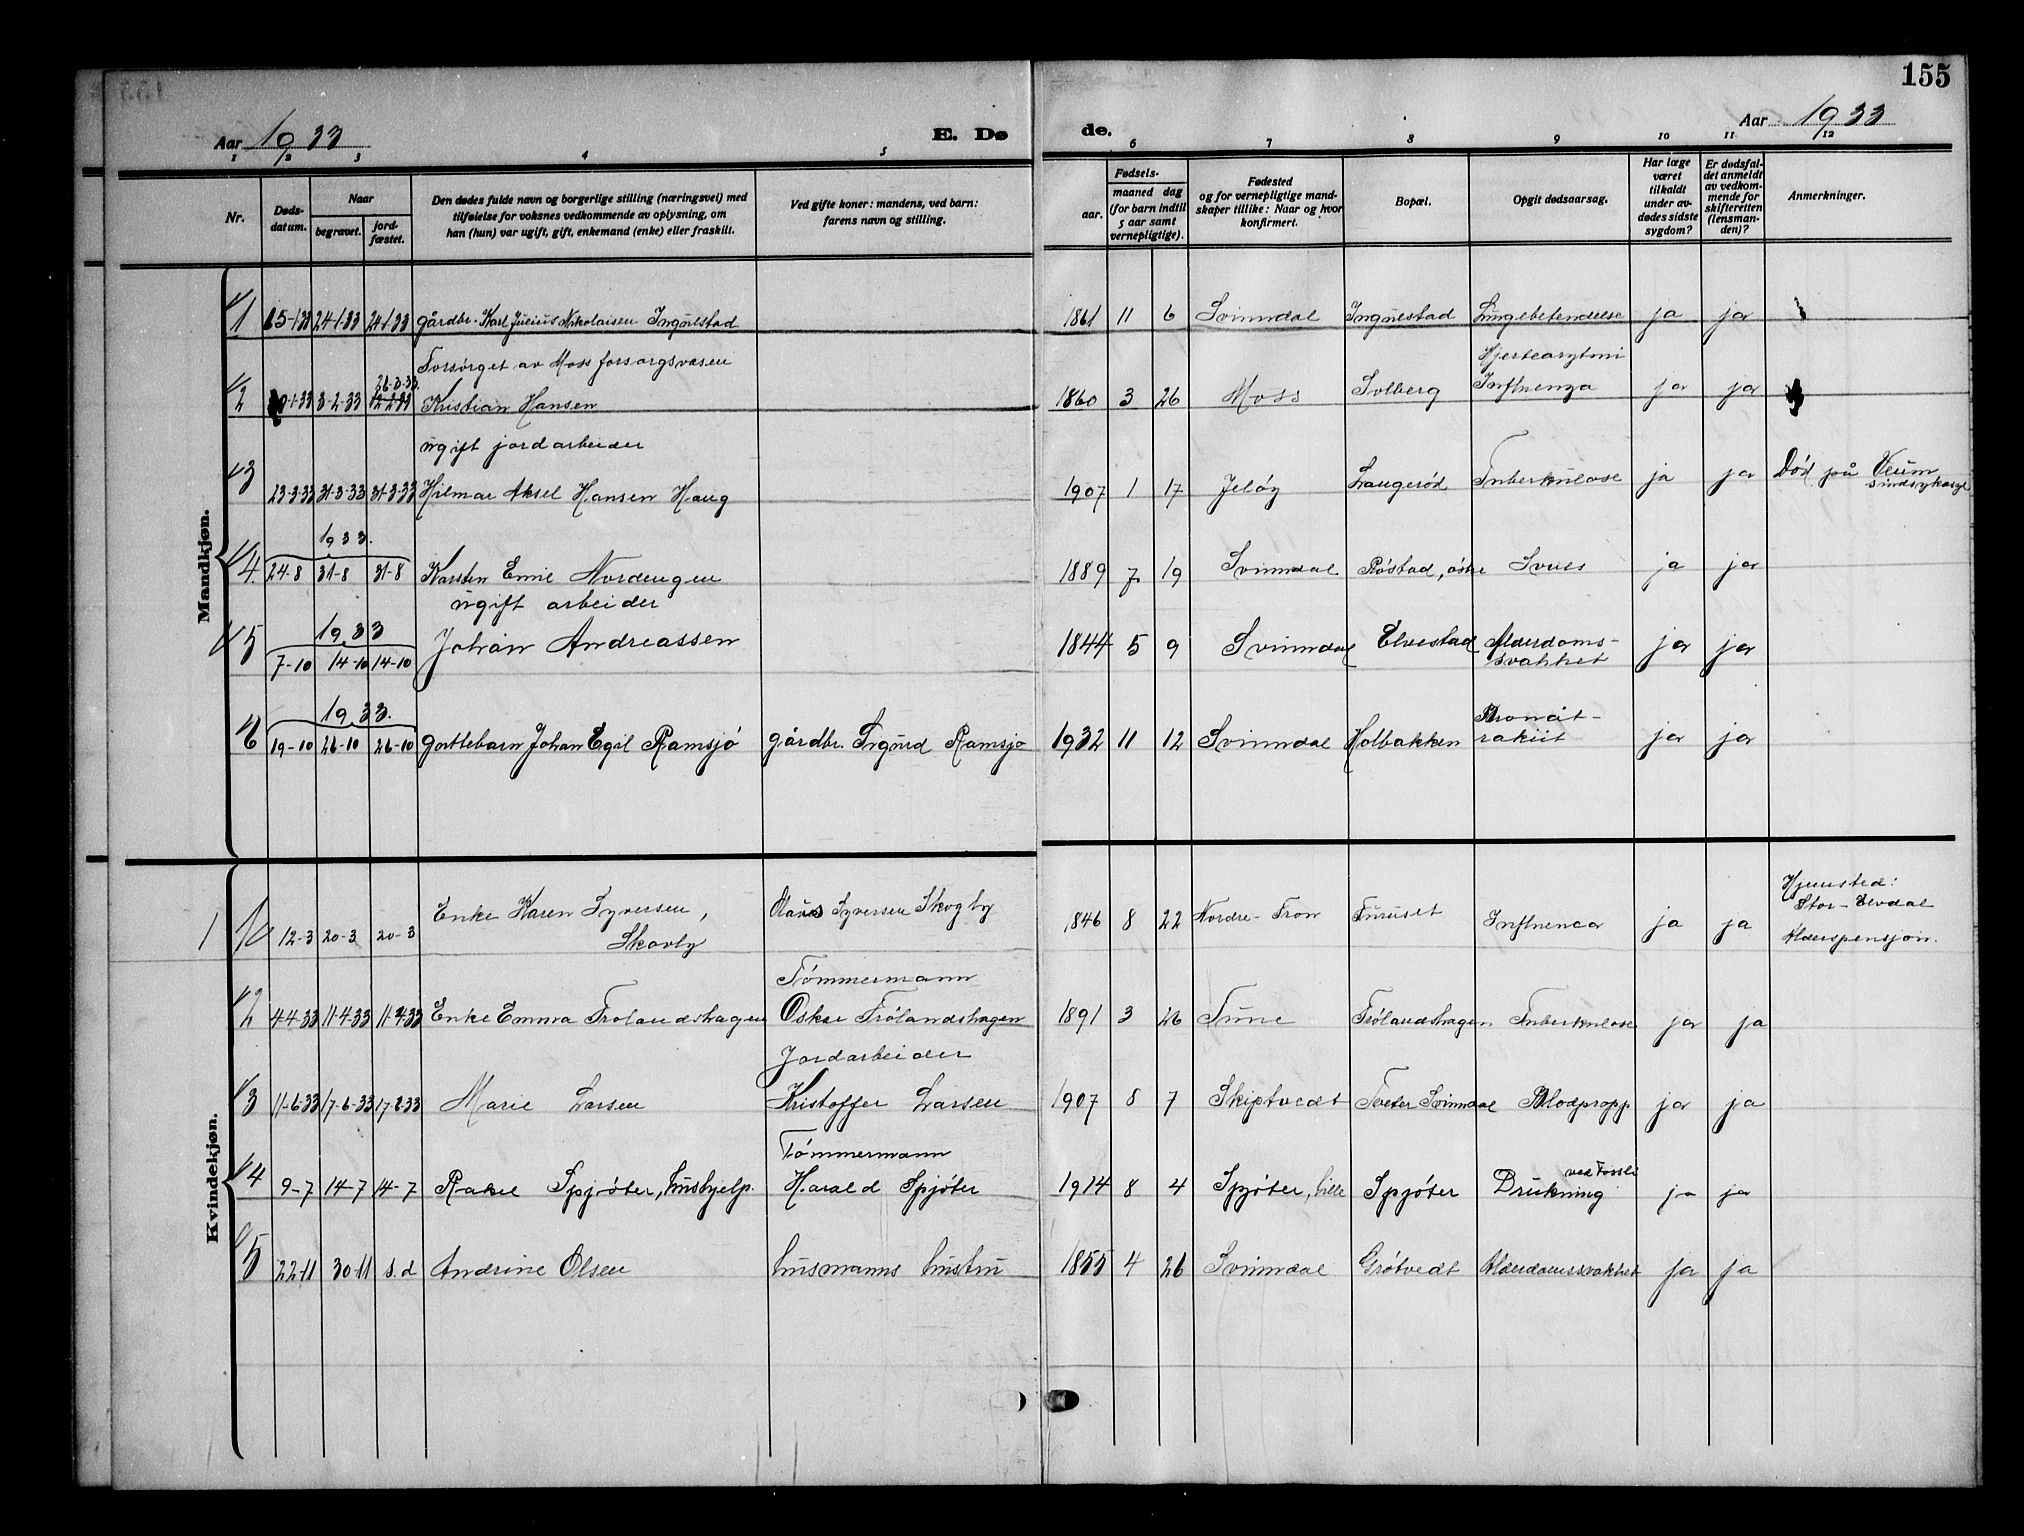 155
Aar 1933
E. Dø
de.
Aar 1933
1 2 3 4 5 6 7 8 9 10 11 12
Nr.
Døds-datum.
Naar
begravet.
jord-fæstet.
Den dødes fulde navn og borgerlige stilling (næringsvei) med
tilføielse for voksnes vedkommende av oplysning, om
han (hun) var ugift, gift, enkemand (enke) eller fraskilt.
Ved gifte koner: mandens, ved barn:
farens navn og stilling.
aar.
Fødsels-
maaned dag
(for barn indtil
5 aar samt
vernepligtige).
Fødested
og for vernepligtige mand-
skaper tillike: Naar og hvor
konfirmert.
Bopæl.
Opgit dødsaarsag.
Har læge
været
tilkaldt
under av-
dødes sidste
sygdom?
Er dødsfal-
det anmeldt
av vedkom-
mende for
skifteretten
(lensman-
den)?
Anmerkninger.
Mandkjøn.
1 15-1-33 24-1-33 24-1-33 gårdbr. Karl Julius Nikolaisen Ingulstad 1861 11 6 Svinndal Ingulstad Lungebetendelse ja ja
Forsørget av Moss forsorgsvæsen 26-3-33 Hjertearytmi
2 -1-33 3-2-33 12-2-33 Kristian Hansen 1860 3 26 Moss Solberg Influenza ja ja
ugift jordarbeider
3 23-3-33 31-3-33 31-3-33 Hilmar Aksel Hansen Haug 1907 1 17 Jeløy Laugerød Tuberkulose ja ja Død på Veum
sindsykasyl
1933.
4. 24-8 31-8 31-8 Karsten Emil Nordengen 1889 7 19 Svinndal Røstad, østre ja ja
ugift arbeider
1933
5 7-10 14-10 14-10 Johan Andreassen 1844 5 9 Svinndal Elvestad Alderdoms-
svakhet ja ja
1933.
6 19-10 26-10 26-10 guttebarn Johan Egil Ramsjø gårdbr. Sigurd Ramsjø 1932 11 12 Svinndal Holbakken rakiit ja ja
Kvindekjøn.
1 1 12-3 20-3 20-3 Enke Karen Syversen, Skovby Olaus Syversen Skogby 1846 8 22 Nordre-Fron Furuset Influenca ja ja Hjemsted:
Stor-Elvdal
Alderspensjon.
Tømmermann
2 4-4-33 11-4-33 11-4-33 Enke Emma Frølandshagen Oskar Frølandshagen 1891 3 26 Tune Frølandshagen Tuberkulose ja ja
Jordarbeider
3 11-6-33 17-6-33 17-6-33 Marie Larsen Kristoffer Larsen 1907 8 7 Skiptvedt Tveter Svinndal Blodpropp ja ja
Tømmermann ved Fossli
4 9-7 14-7 14-7 Rakel Spjøter, hushjelp. Harald Spjøter 1914 8 4 Spjøter, lille Spjøter Drukning ja ja
5 22-11 30-11 s.d Andrine Olsen husmanns hustru 1855 4 26 Svinndal Grøtvedt Alderdomssvakhet ja ja